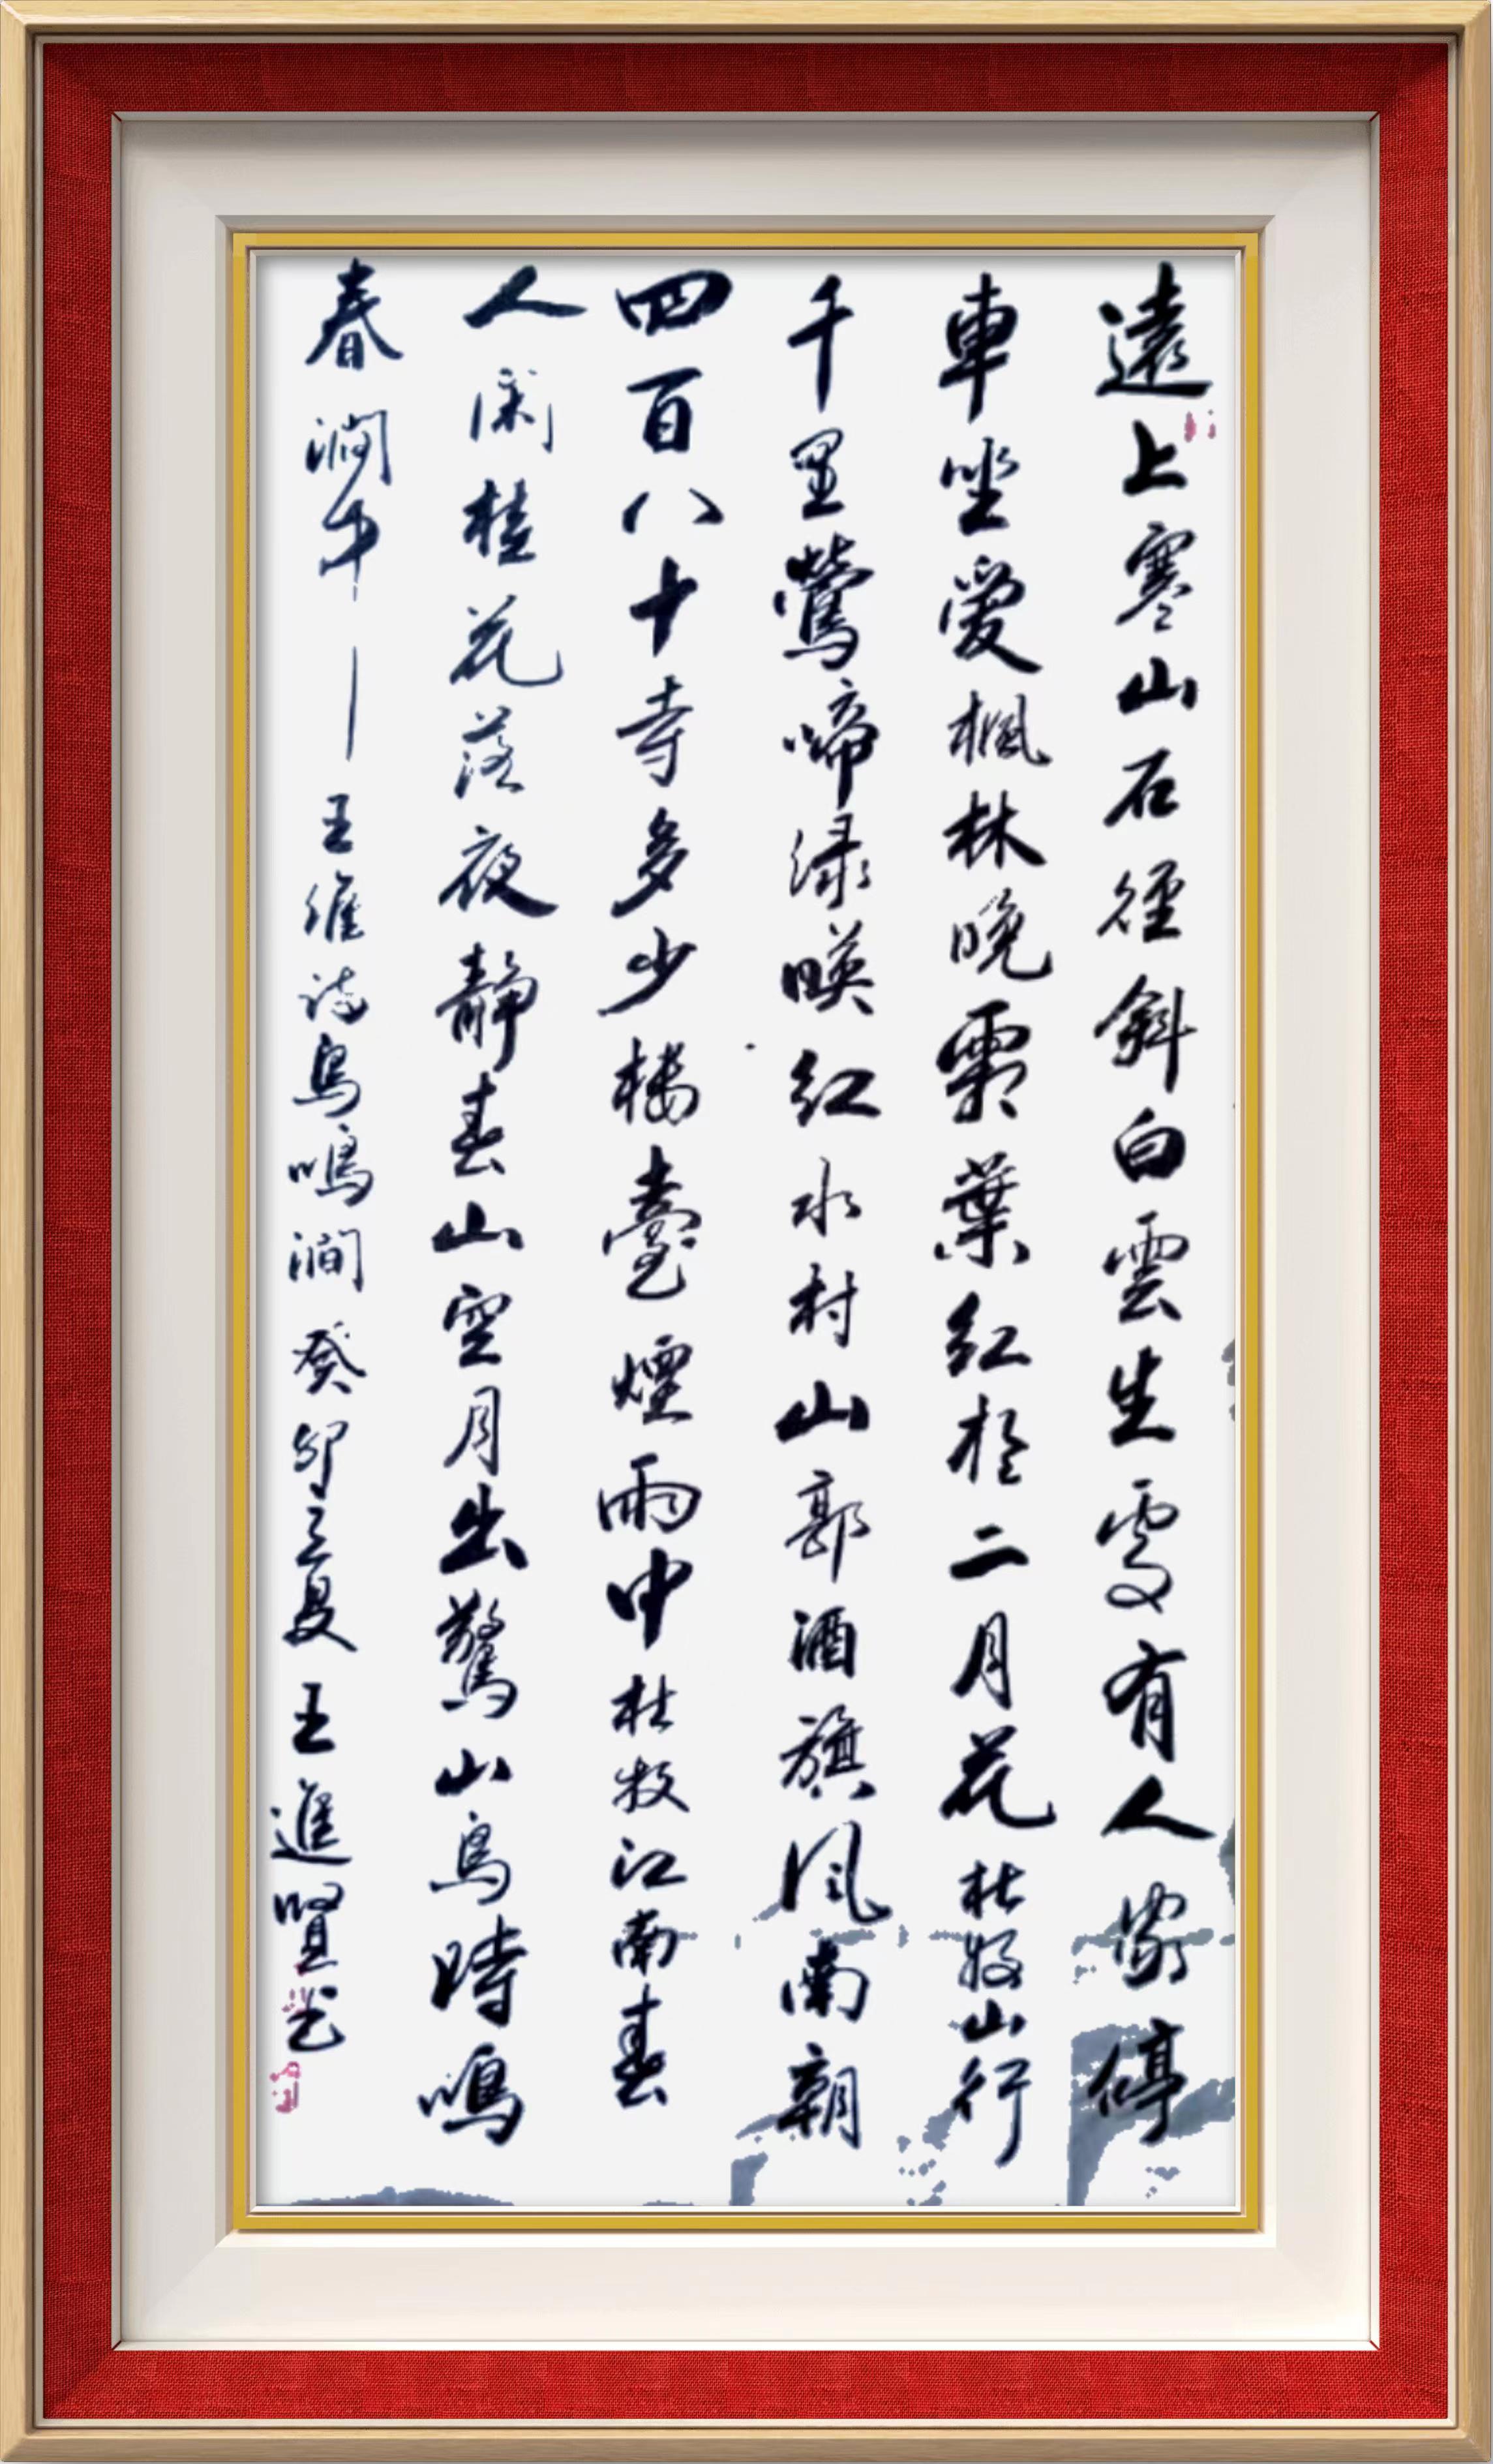 遠上寒山石徑斜白雲生處有人家停
車坐愛楓林晚霜葉紅於二月花杜牧山行
千里鶯啼綠暎紅水村山郭酒旗風南朝
四百八十寺多少樓臺煙雨中杜牧江南春
人閑桂花落夜靜春山空月出驚山鳥時鳴
春澗中王維詩鳥鳴澗癸卯立夏王進賢書